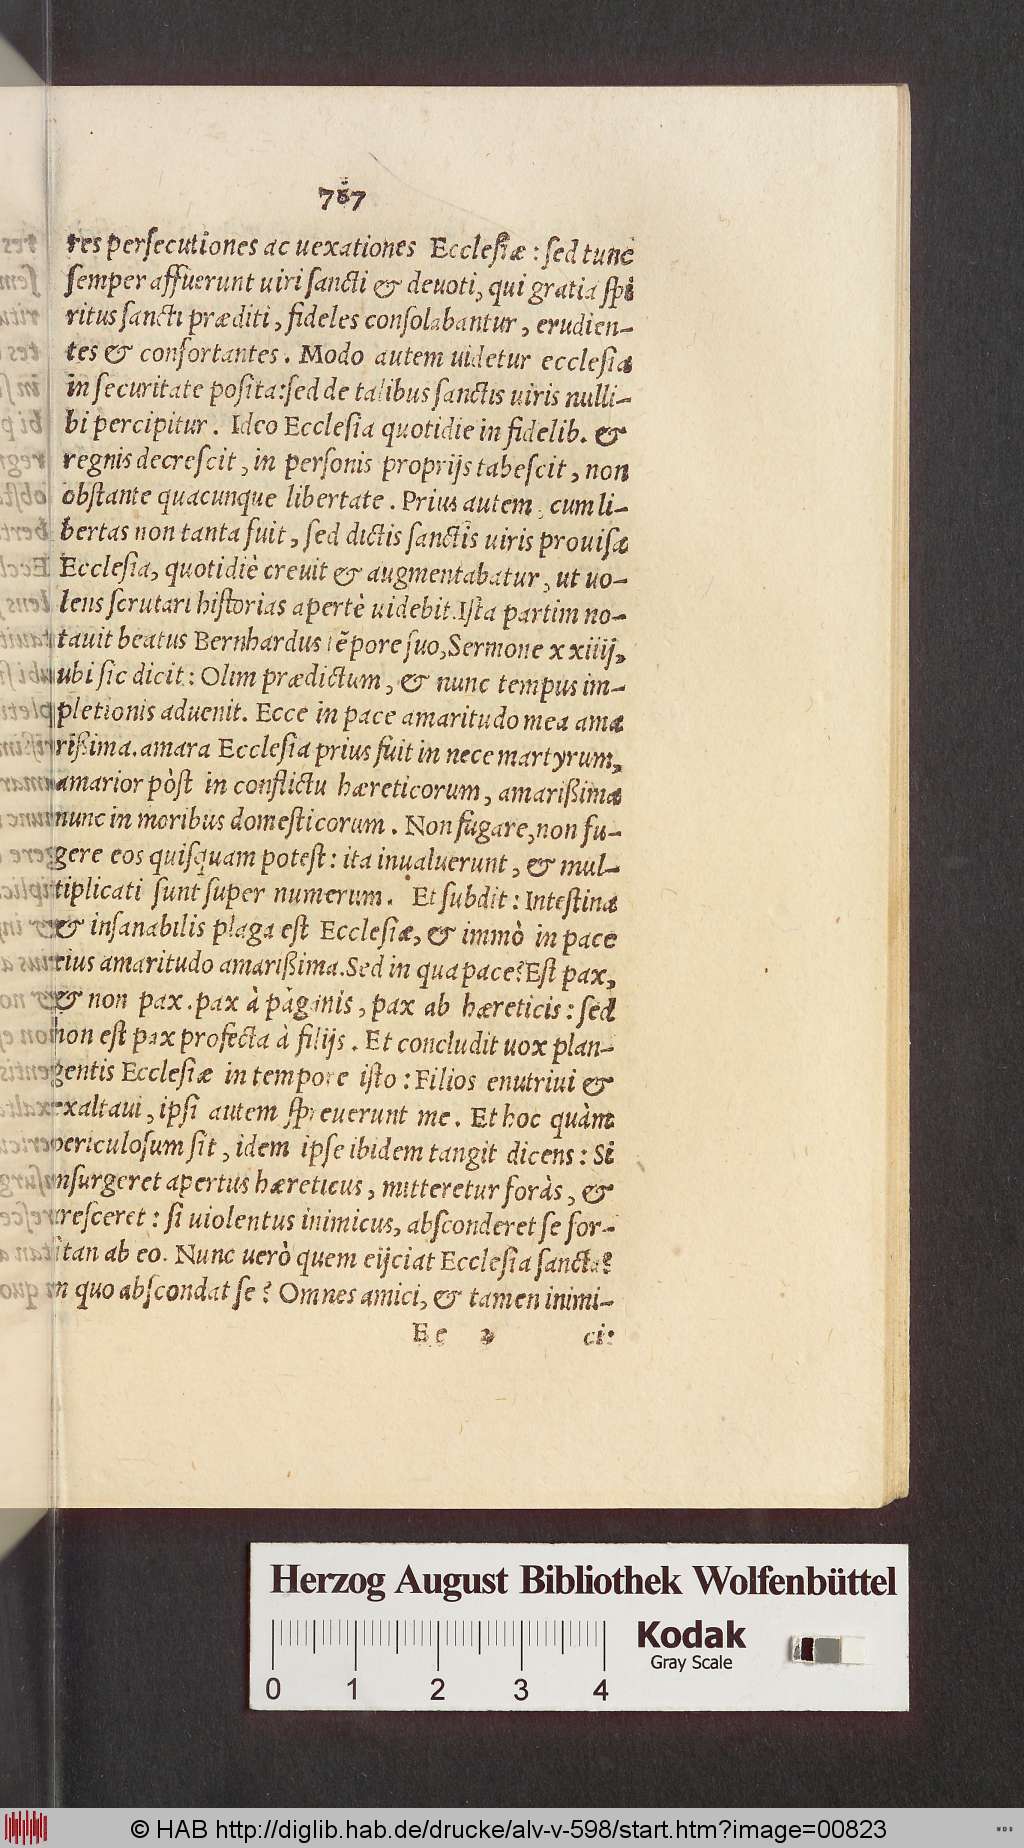 767
res persecutiones ac uexationes Ecclesiæ : sed tunc
semper affuerunt uiri sancti & deuoti, qui gratia spi
ritus sancti præditi, fideles consolabantur, erudien-
tes & confortantes. Modo autem uidetur ecclesia
in securitate posita:sed de talibus sanctis uiris nulli-
bi percipitur. Ideo Ecclesia quotidie in fidelib. &
regnis decrescit, in personis proprijs tabescit, non
obstante quacunque libertate. Prius autem, cum li-
bertas non tanta fuit, sed dictis sanctis uiris prouisa
Ecclesia, quotidiè creuit & augmentabatur, ut uo-
lens scrutari historias apertè uidebit. Ista partim no-
tauit beatus Bernhardus tẽpore suo, Sermone xxiiij,
ubi sic dicit: Olim prædictum, & nunc tempus im-
pletionis aduenit. Ecce in pace amaritudo mea ama
rißima. amara Ecclesia prius fuit in nece martyrum,
amarior pòst in conflictu hæreticorum, amarißima
nunc in moribus domesticorum. Non fugare, non fu-
gere eos quisquam potest: ita inualuerunt, & mul-
tiplicati sunt super numerum. Et subdit: Intestina
& insanabilis plaga est Ecclesiæ, & immò in pace
eius amaritudo amarißima. Sed in qua pace? Est pax,
& non pax. pax à paganis, pax ab hæreticis: sed
non est pax profecta à filijs. Et concludit uox plan-
gentis Ecclesiæ in tempore isto: Filios enutriui &
exaltaui, ipsi autem spreuerunt me. Et hoc quàm
periculosum sit, idem ipse ibidem tangit dicens: Si
insurgeret apertus hæreticus, mitteretur foràs, &
aresceret: si uiolentus inimicus, absconderet se for-
sitan ab eo. Nunc uerò quem eijciat Ecclesia sancta?
in quo abscondat se? Omnes amici, & tamen inimi-
Ee 2 ci:
Herzog August Bibliothek Wolfenbüttel
0 1 2 3 4
Kodak
Gray Scale
© HAB http://diglib.hab.de/drucke/alv-v-598/start.htm?image=00823